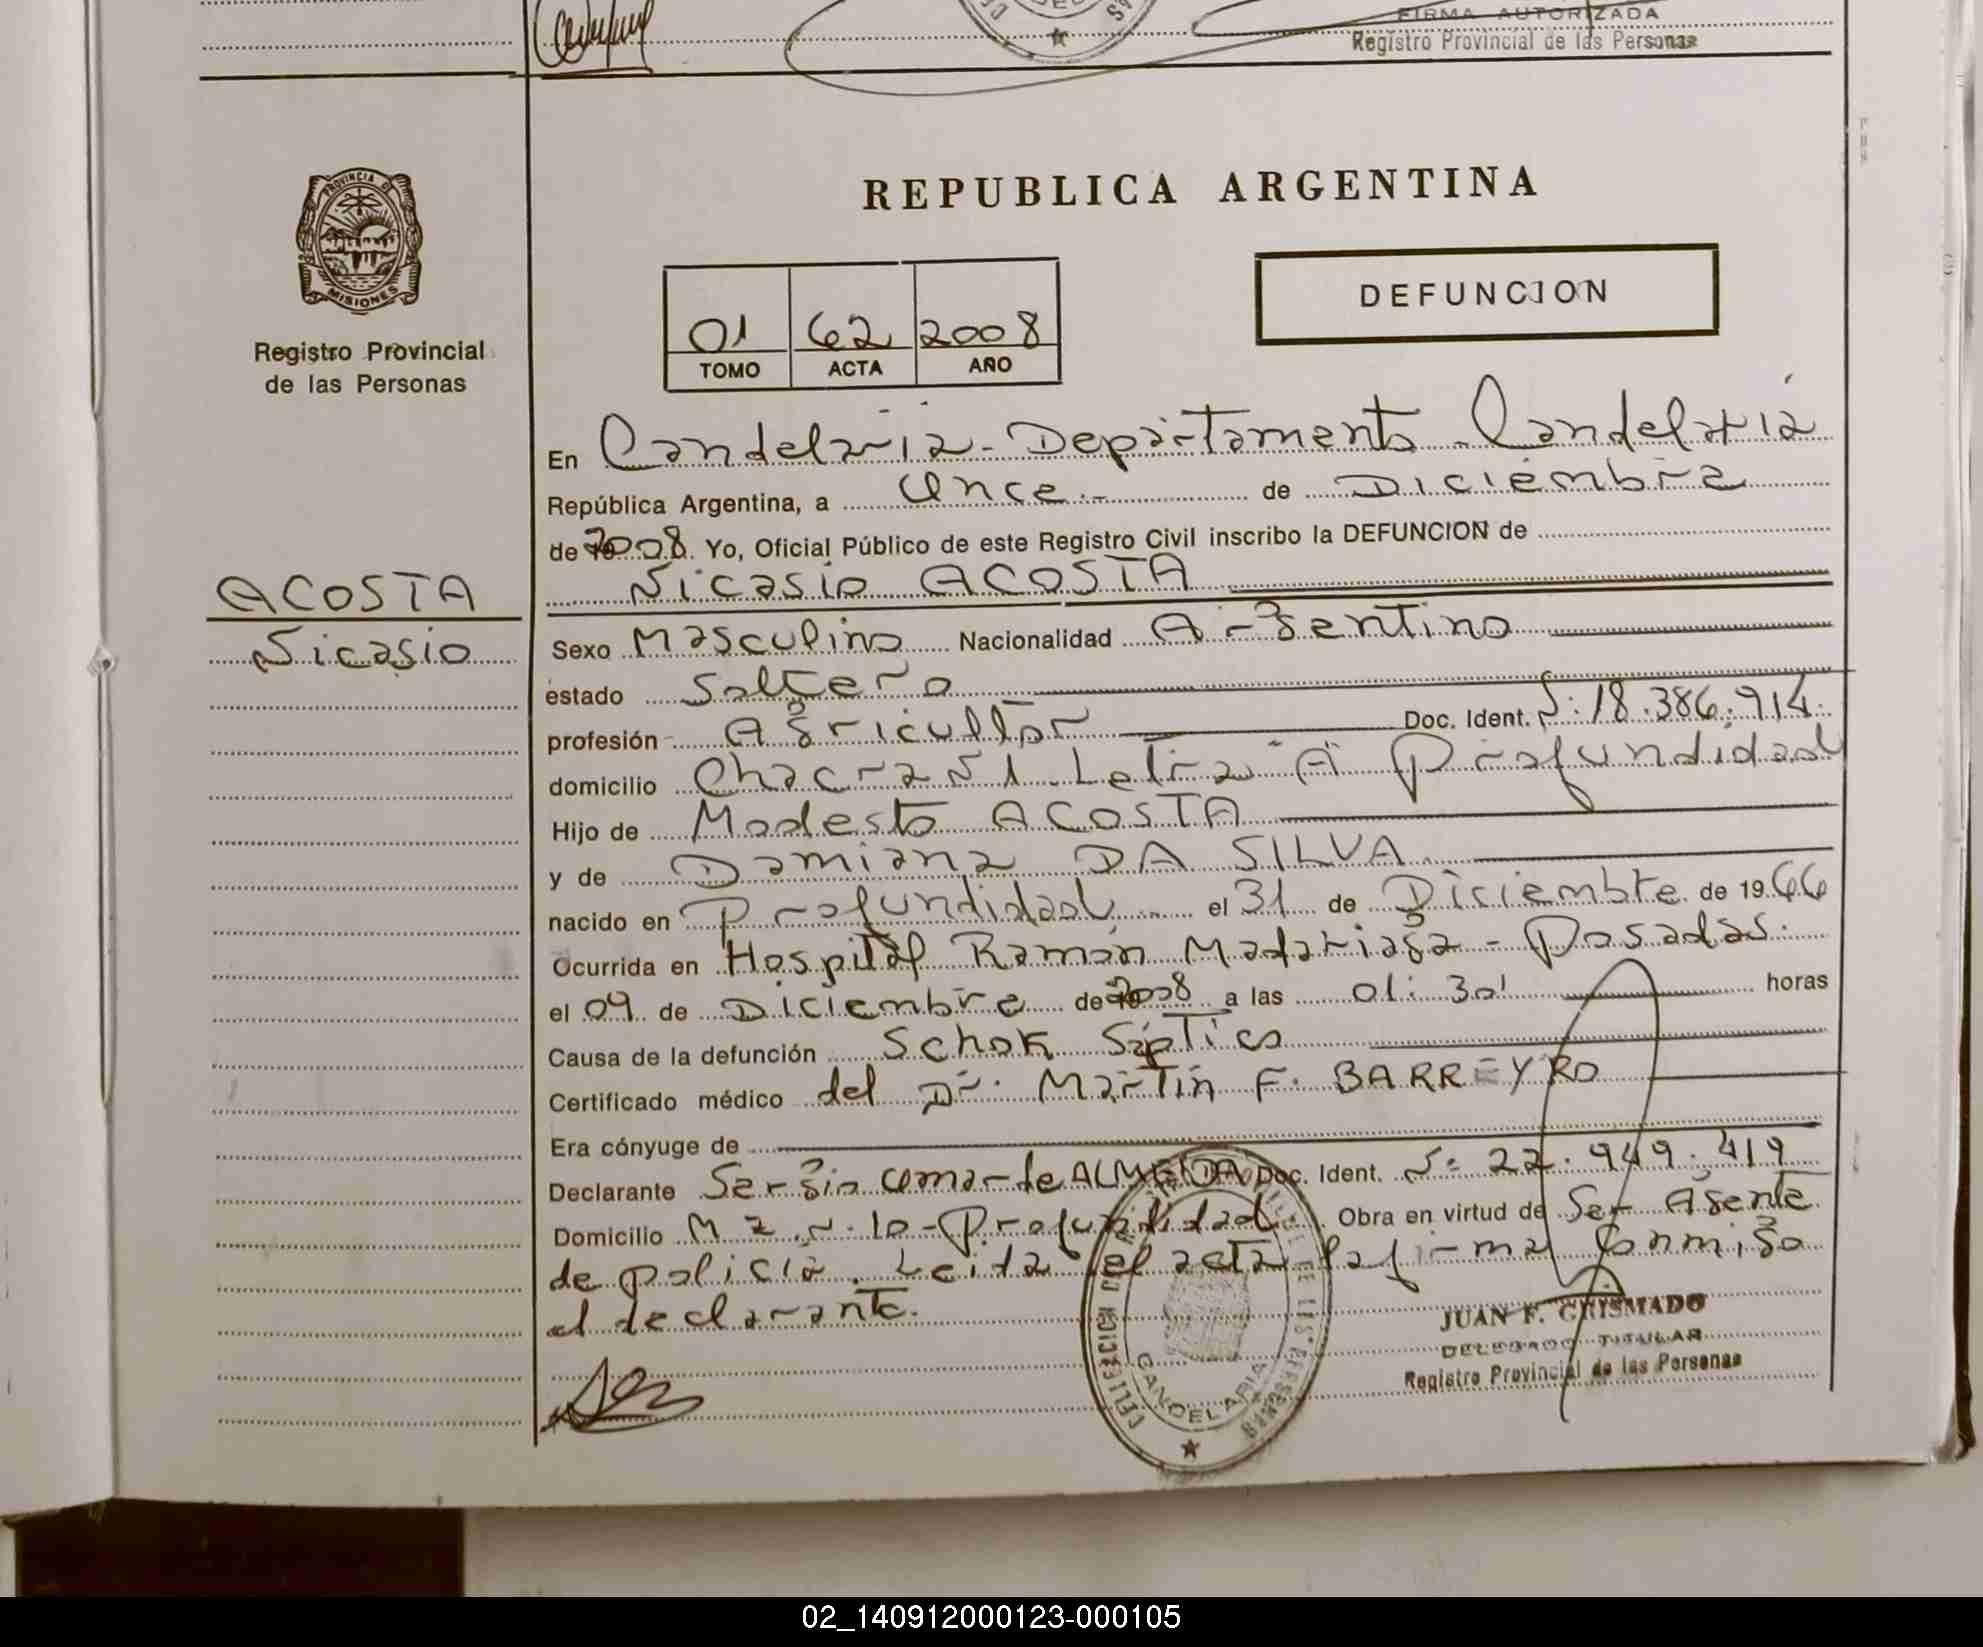 FIRMA AUTORIZADA
Registro Provincial de las Personas
PROVINCIA DE
MISIONES
Registro Provincial
de las Personas
REPUBLICA ARGENTINA
DEFUNCION
01 62 2008
TOMO ACTA AÑO
En Candelaria - Departamento Candelaria
República Argentina, a Once.- de Diciembre
de 2008. Yo, Oficial Público de este Registro Civil inscribo la DEFUNCION de
ACOSTA
Nicasio
Nicasio ACOSTA
Sexo Masculino Nacionalidad Argentino
estado Soltero
profesión Agricultor Doc. Ident. N: 18.386.914.
domicilio Chacra N 1 Letra "A" Profundidad
Hijo de Modesto ACOSTA
y de Damiana DA SILVA
nacido en Profundidad el 31 de Diciembre de 1966
Ocurrida en Hospital Ramón Madariaga - Posadas.
el 09 de Diciembre de 2008 a las 01:30' horas
Causa de la defunción Schok Siptico
Certificado médico del Dr. Martin F. BARREYRO
Era cónyuge de
Declarante Sergio Omar de ALMEIDA Doc. Ident. N: 22.949.419
Domicilio Mz. N. 10 - Profundidad Obra en virtud de Ser Agente
de policia. Leida el acta la firma Conmigo
el declarante.
JUAN F. GRISMADO
DELEGADO TITULAR
Registro Provincial de las Personas
CANDELARIA
02_140912000123-000105